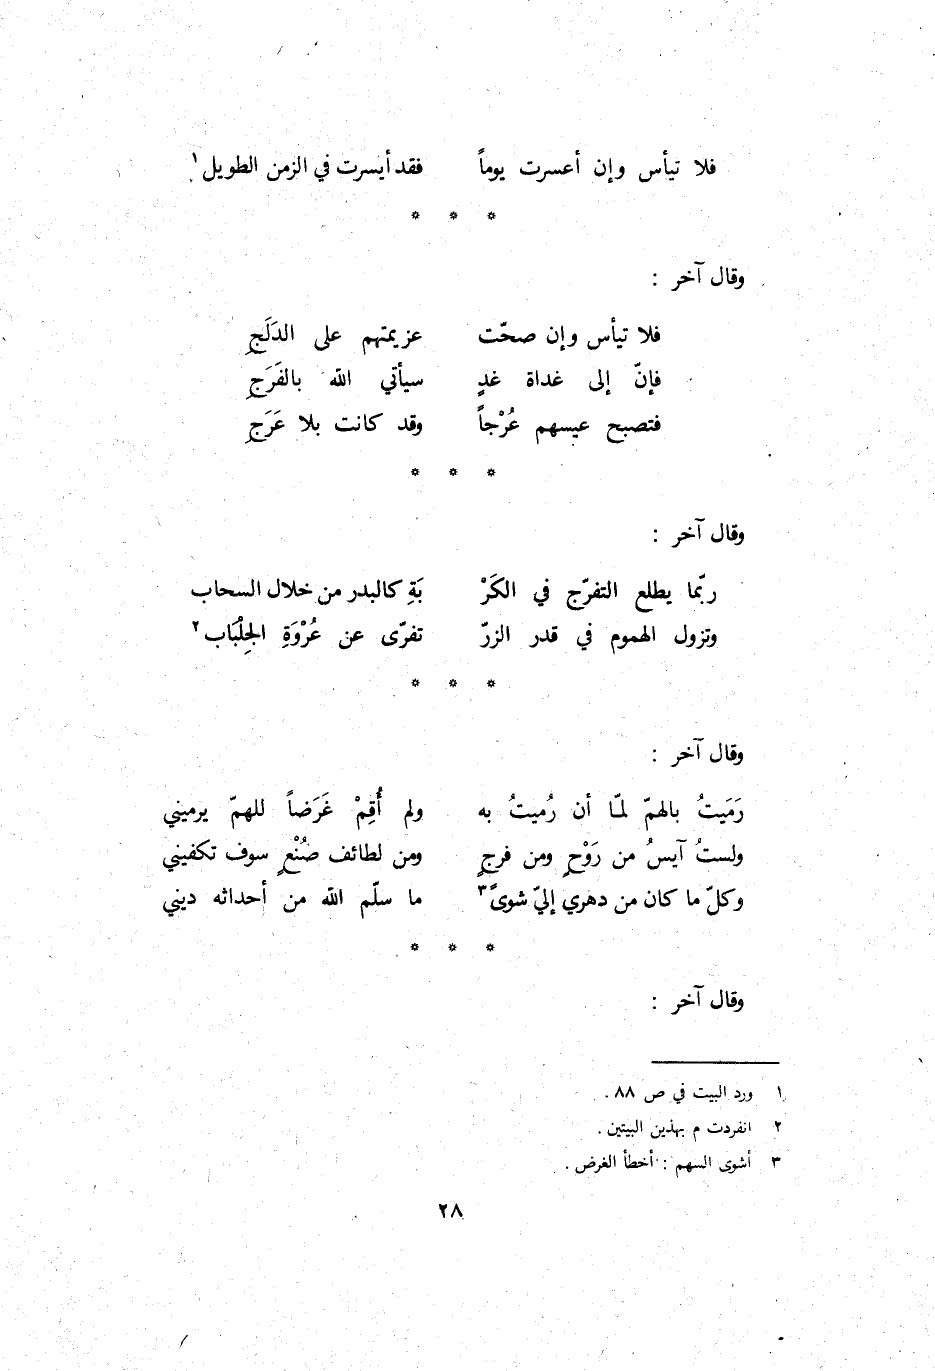 فلا تيأس وإن أعسرت يوماً فقد أيسرت في الزمن الطويل١
* * *
وقال آخر :
فلا تيأس وإن صحّت عزيمتهم على الدَلَجِ
فإنّ إلى غداة غدٍ سيأتي الله بالفَرَجِ
فتصبح عيسهم عُرْجاً وقد كانت بلا عَرَجِ
* * *
وقال آخر :
ربّما يطلع التفرّج في الكَرْ بَةِ كالبدر من خلال السحاب
وتزول الهموم في قدر الزرّ تفرّى عن عُرْوَةِ الجِلْبَاب٢
* * *
وقال آخر :
رَمَيتُ بالهمّ لمّا أن رُميتُ به ولم أُقِمْ غَرَضاً للهمّ يرميني
ولستُ آيسُ من رَوْحٍ ومن فرجٍ ومن لطائف صُنْعٍ سوف تكفيني
وكلّ ما كان من دهري إليّ شوىً٣ ما سلّم الله من أحداثه ديني
* * *
وقال آخر :
١ ورد البيت في ص ٨٨ .
٢ انفردت م بهذين البيتين .
٣ أشوى السهم : أخطأ الغرض .
٢٨